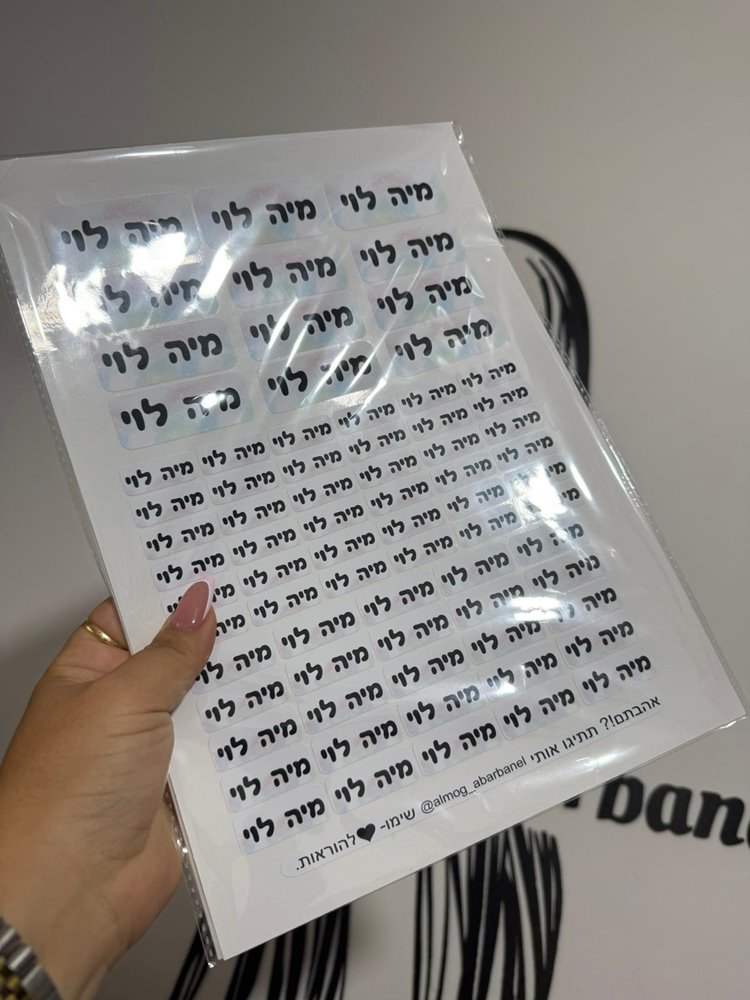 מיה לוי מיה לוי מיה לוי
מיה לוי מיה לוי מיה
מיה לוי מיה לוי מיה לוי
מיה לוי מיה לוי מיה לוי
מיה לוי מיה לוי מיה לוי מיה לוי מיה לוי מיה לוי
מיה לוי מיה לוי מיה לוי מיה לוי מיה לוי מיה לוי
מיה לוי מיה לוי מיה לוי מיה לוי מיה לוי מיה לוי
מיה לוי מיה לוי מיה לוי מיה לוי מיה לוי מיה לוי
מיה לוי מיה לוי מיה לוי מיה לוי מיה
מיה לוי מיה לוי מיה לוי מיה לוי מיה
מיה לוי מיה לוי מיה לוי מיה לוי מיה לוי
מיה לוי מיה לוי מיה לוי מיה לוי מיה לוי
מיה לוי מיה לוי מיה לוי מיה לוי מיה לוי
מיה לוי מיה לוי מיה לוי מיה לוי מיה לוי
מיה לוי מיה לוי מיה לוי מיה לוי מיה לוי
אהבתם!? תתיגו אותי @almog_abarbanel שימו- ♥להוראות.